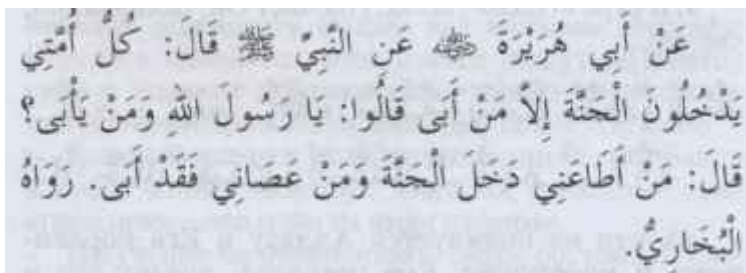 عَنْ أَبِي هُرَيْرَةَ ﷺ عَنِ النَّبِيِّ ﷺ قَالَ: كُلُّ أُمَّتِي
يَدْخُلُونَ الْجَنَّةَ إِلاَّ مَنْ أَبَى قَالُوا: يَا رَسُولَ اللهِ وَمَنْ يَأْبَى؟
قَالَ: مَنْ أَطَاعَنِي دَخَلَ الْجَنَّةَ وَمَنْ عَصَانِي فَقَدْ أَبَى. رَوَاهُ
الْبُخَارِيُّ.